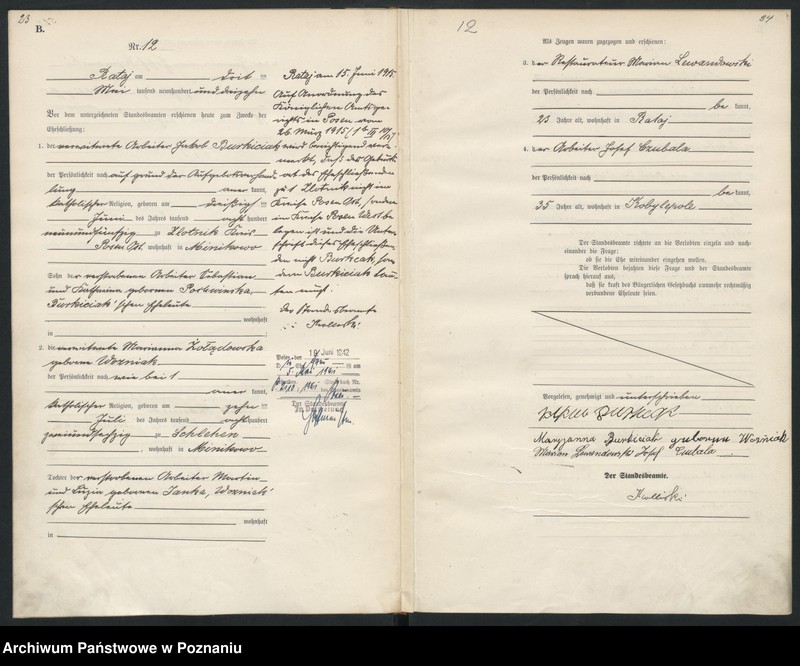 23
B.
Nr. 12
Rataj am drei ten
Mai tausend neunhundert und dreizehn
Vor dem unterzeichneten Standesbeamten erschienen heute zum Zwecke der
Eheschließung:
1. der verwitwete Arbeiter Jakob Burkiciak
der Persönlichkeit nach auf grund der Aufgebotsverhand-
lung aner kannt,
katholischer Religion, geboren am dreißig sten
Juni des Jahres tausend acht hundert
neunundfünfzig zu Zlotnik Kreis
Posen Ost, wohnhaft in Minikowo
Sohn der verstorbenen Arbeiter Sebastian
und Katharina geborenen
Burkiciak'schen Eheleute
wohnhaft
in
2. die verwitwete Marianna Żołądowska
geborene Wozniak
der Persönlichkeit nach wie bei 1
aner kannt,
katholischer Religion, geboren am zehn ten
Juli des Jahres tausend acht hundert
zweiundsechzig zu Schlehen
, wohnhaft in Minikowo
Tochter der verstorbenen Arbeiter Martin
und Luzia geborenen Janka, Wozniak'
schen Eheleute
wohnhaft
in
Rataj am 15. Juni 1915.
Auf Anordnung des
Königlichen Amtsge-
richts in Posen vom
26. März 1915
wird berichtigend ver-
merkt, daß der Geburts-
ort des Eheschließenden
zu 1 Zlotnik nicht im
Kreise Posen Ost, sondern
im Kreise Posen West be-
legen ist und die Unter-
schrift dieses Eheschließen-
den nicht Burkcak, son-
dern Burkiciak lau-
ten muß.
Der Standesbeamte
Kolliski
Posen, den 10. Juni 1942
Der Standesbeamte
In Vertretung
12
34
Als Zeugen waren zugezogen und erschienen:
3. der Restaurateur Marian Lewandowski
der Persönlichkeit nach
be kannt,
23 Jahre alt, wohnhaft in Rataj
4. der Arbeiter Josef Czubala
der Persönlichkeit nach
be kannt,
35 Jahre alt, wohnhaft in Kobylepole
Der Standesbeamte richtete an die Verlobten einzeln und nach-
einander die Frage:
ob sie die Ehe miteinander eingehen wollen.
Die Verlobten bejahten diese Frage und der Standesbeamte
sprach hierauf aus,
daß sie kraft des Bürgerlichen Gesetzbuchs nunmehr rechtmäßig
verbundene Eheleute seien.
Vorgelesen, genehmigt und unterschrieben
Maryanna Burkiciak geborene Woźniak
Marian Lewandowski Josef Czubala
Der Standesbeamte.
Kolliski
Archiwum Państwowe w Poznaniu